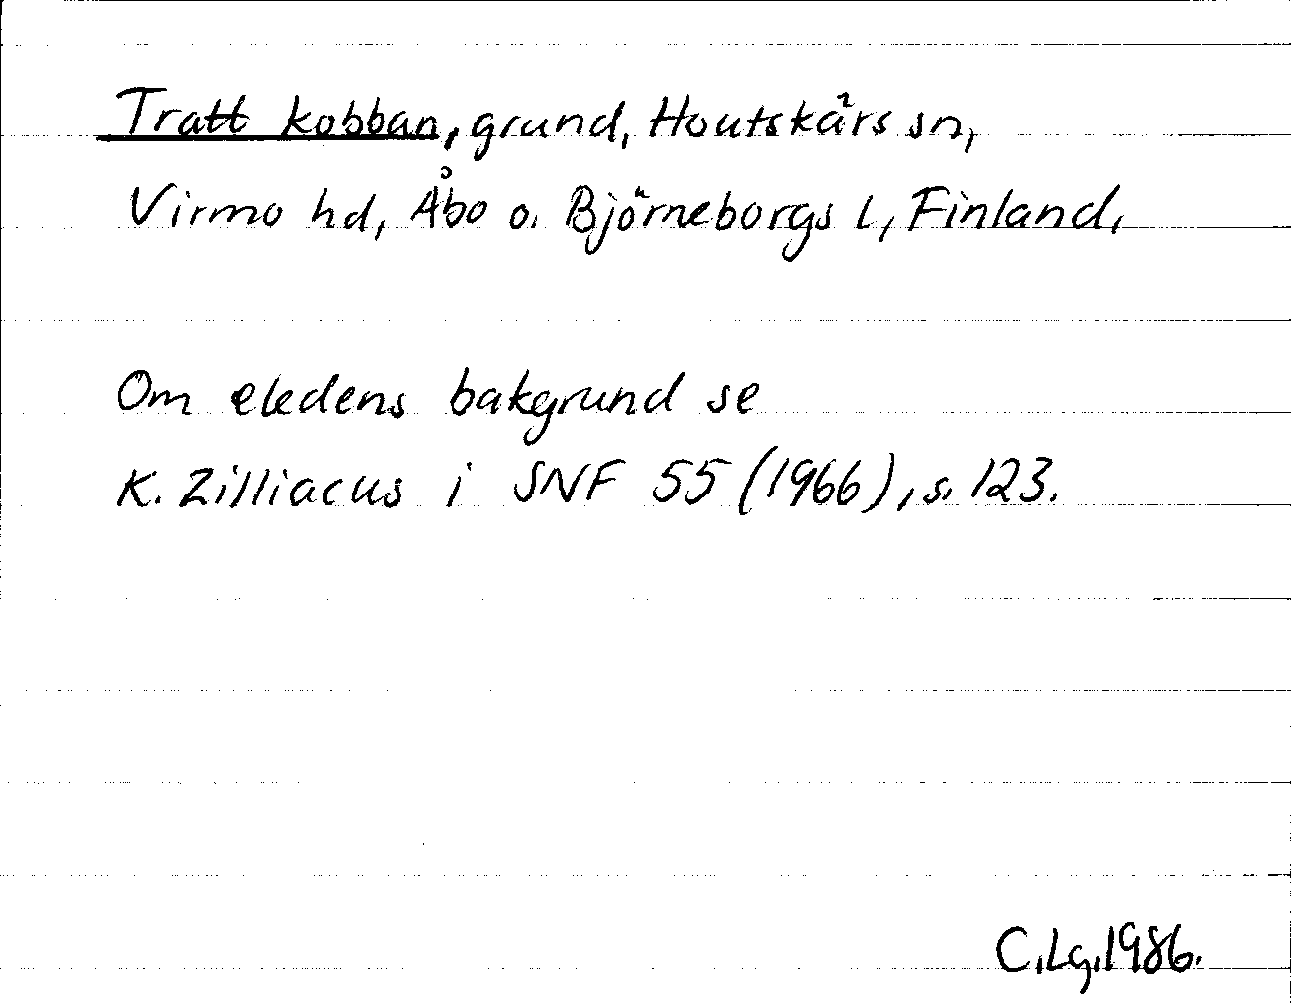 Tratt kobban, grund, Houtskärs sn,
Virmo hd, Åbo o. Björneborgs l, Finland.
Om eledens bakgrund se
K. Zilliacus i SNF 55 (1966), s. 123.
C.Lg.1986.